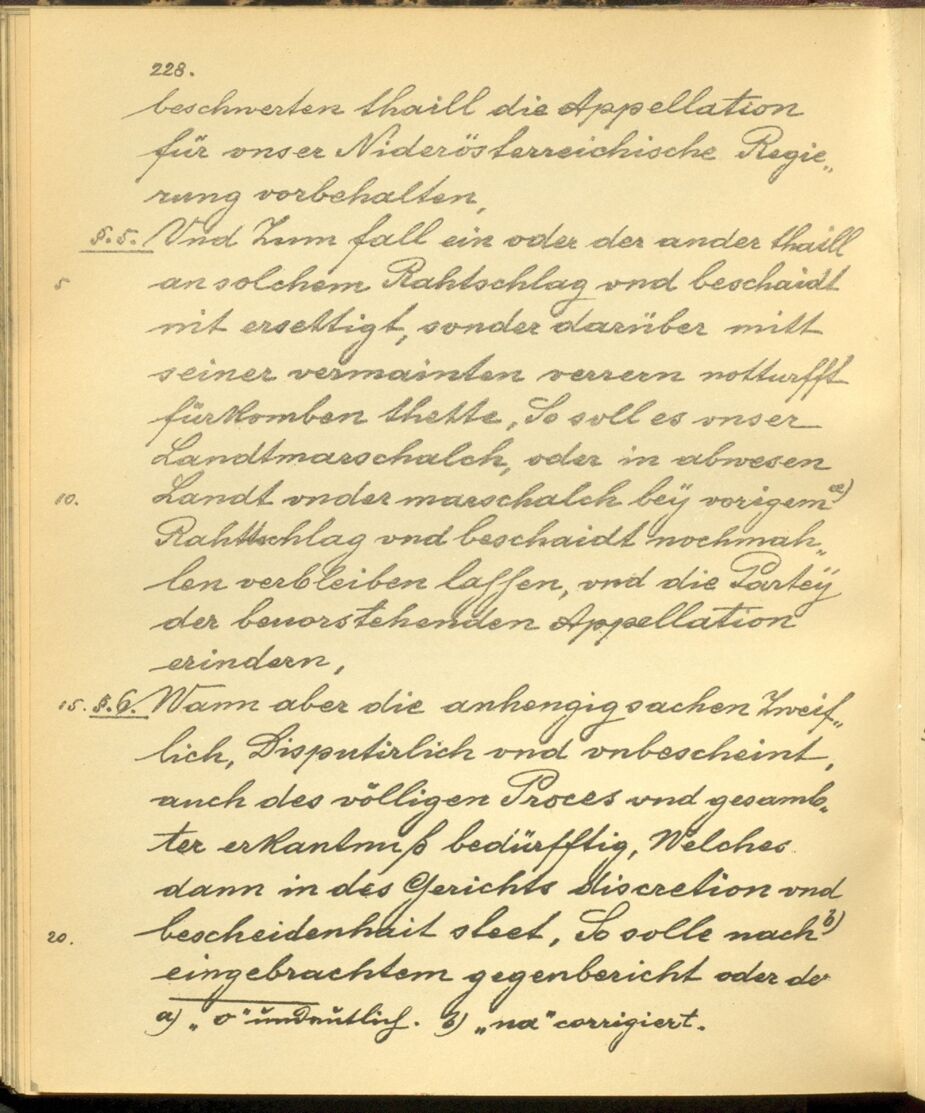 228.
beschwerten thaill die Appellation
für vnser Niderösterreichische Regie„
rung vorbehalten,
§.5. Vnd Zum fall ein oder der ander thaill
5 an solchem Rahtschlag vnd beschaidt
nit ersettigt, sonder darüber mitt
seiner vermainten verrern notturfft
fürkomben thette, So soll es vnser
Landtmarschalch, oder in abwesen
10. Landt vndermarschalch beÿ vorigem a)
Rahttschlag vnd beschaidt nochmah„
len verbleiben lassen, vnd die Parteÿ
der beuorstehenden Appellation
erindern,
15. §.6. Wann aber die anhengig sachen Zweif„
lich, Disputirlich vnd vnbescheint,
auch des völligen Proces vnd gesamb„
ter erkantnuß bedürfftig, Welches
dann in des Gerichts discretion vnd
20. bescheidenhait steet, So solle nach b)
eingebrachtem gegenbericht oder de
a) „o“ undeutlich. b) „na“ corrigiert.